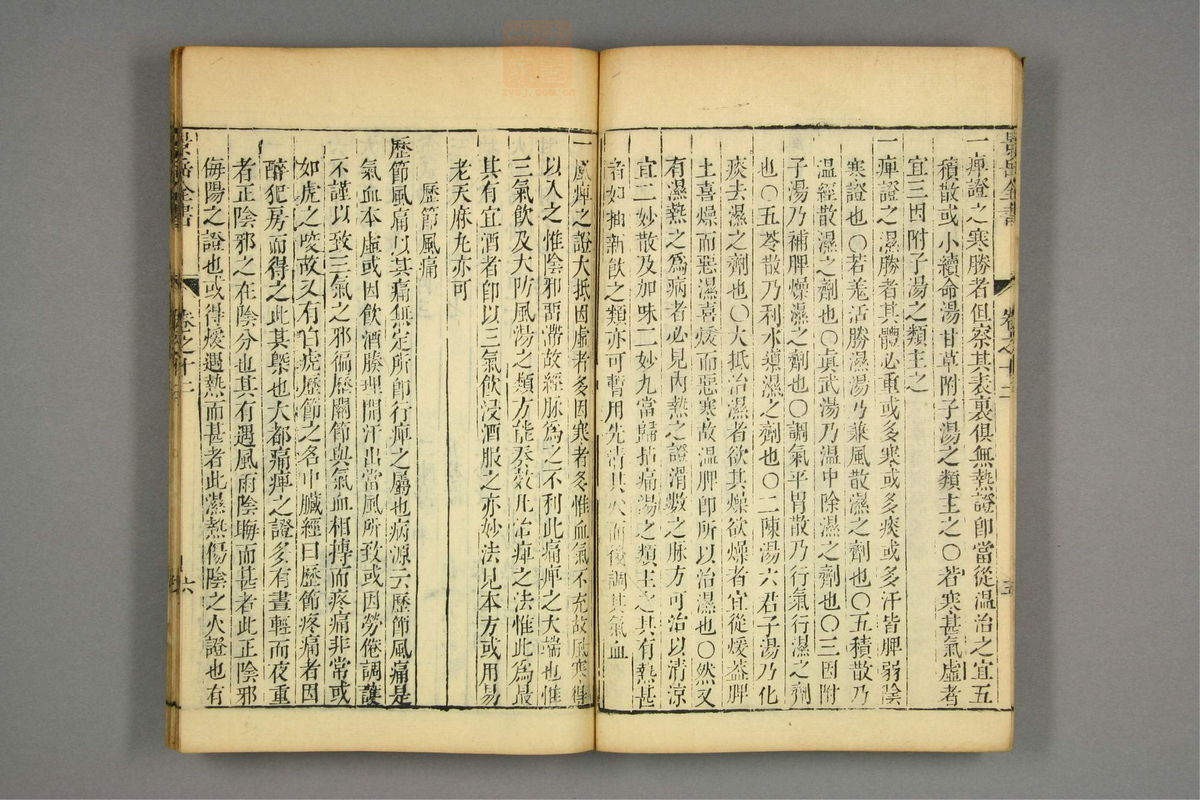 一痺證之寒勝者但察其表裏俱無熱證即當從温治之宜五
積散或小續命湯甘草附子湯之類主之○若寒甚氣虛者
宜三因附子湯之類主之
一痺證之濕勝者其體必重或多寒或多痰或多汗皆脾弱陰
寒證也○若羗活勝濕湯乃兼風散濕之劑也○五積散乃
温經散濕之劑也○真武湯乃温中除濕之劑也○三因附
子湯乃補脾燥濕之劑也○調氣平胃散乃行氣行濕之劑
也○五苓散乃利水導濕之劑也○二陳湯六君子湯乃化
痰去濕之劑也○大抵治濕者欲其燥欲燥者宜從煖葢脾
土喜燥而惡濕喜煖而惡寒故温脾即所以治濕也○然又
有濕熱之爲病者必見内熱之證滑數之脉方可治以清涼
宜二妙散及加味二妙丸當歸拈痛湯之類主之其有熱甚
者如抽薪飲之類亦可暫用先清其火而後調其氣血
一風痺之證大抵因虛者多因寒者多惟血氣不充故風寒得
以入之惟陰邪畱滯故經脉爲之不利此痛痺之大端也惟
三氣飲及大防風湯之類方能奏效凡治痺之法惟此爲最
其有宜酒者即以三氣飲浸酒服之亦妙法見本方或用易
老天麻丸亦可
歷節風痛
歷節風痛以其痛無定所即行痺之屬也病源云歷節風痛是
氣血本虛或因飲酒腠理開汗出當風所致或因勞倦調護
不謹以致三氣之邪徧歷關節與氣血相搏而疼痛非常或
如虎之咬故又有白虎歷節之名中臟經曰歷節疼痛者因
醉犯房而得之此其槩也大都痛痺之證多有晝輕而夜重
者正陰邪之在陰分也其有遇風雨陰晦而甚者此正陰邪
侮陽之證也或得煖遇熱而甚者此濕熱傷陰之火證也有
景岳全書
卷之十二
六